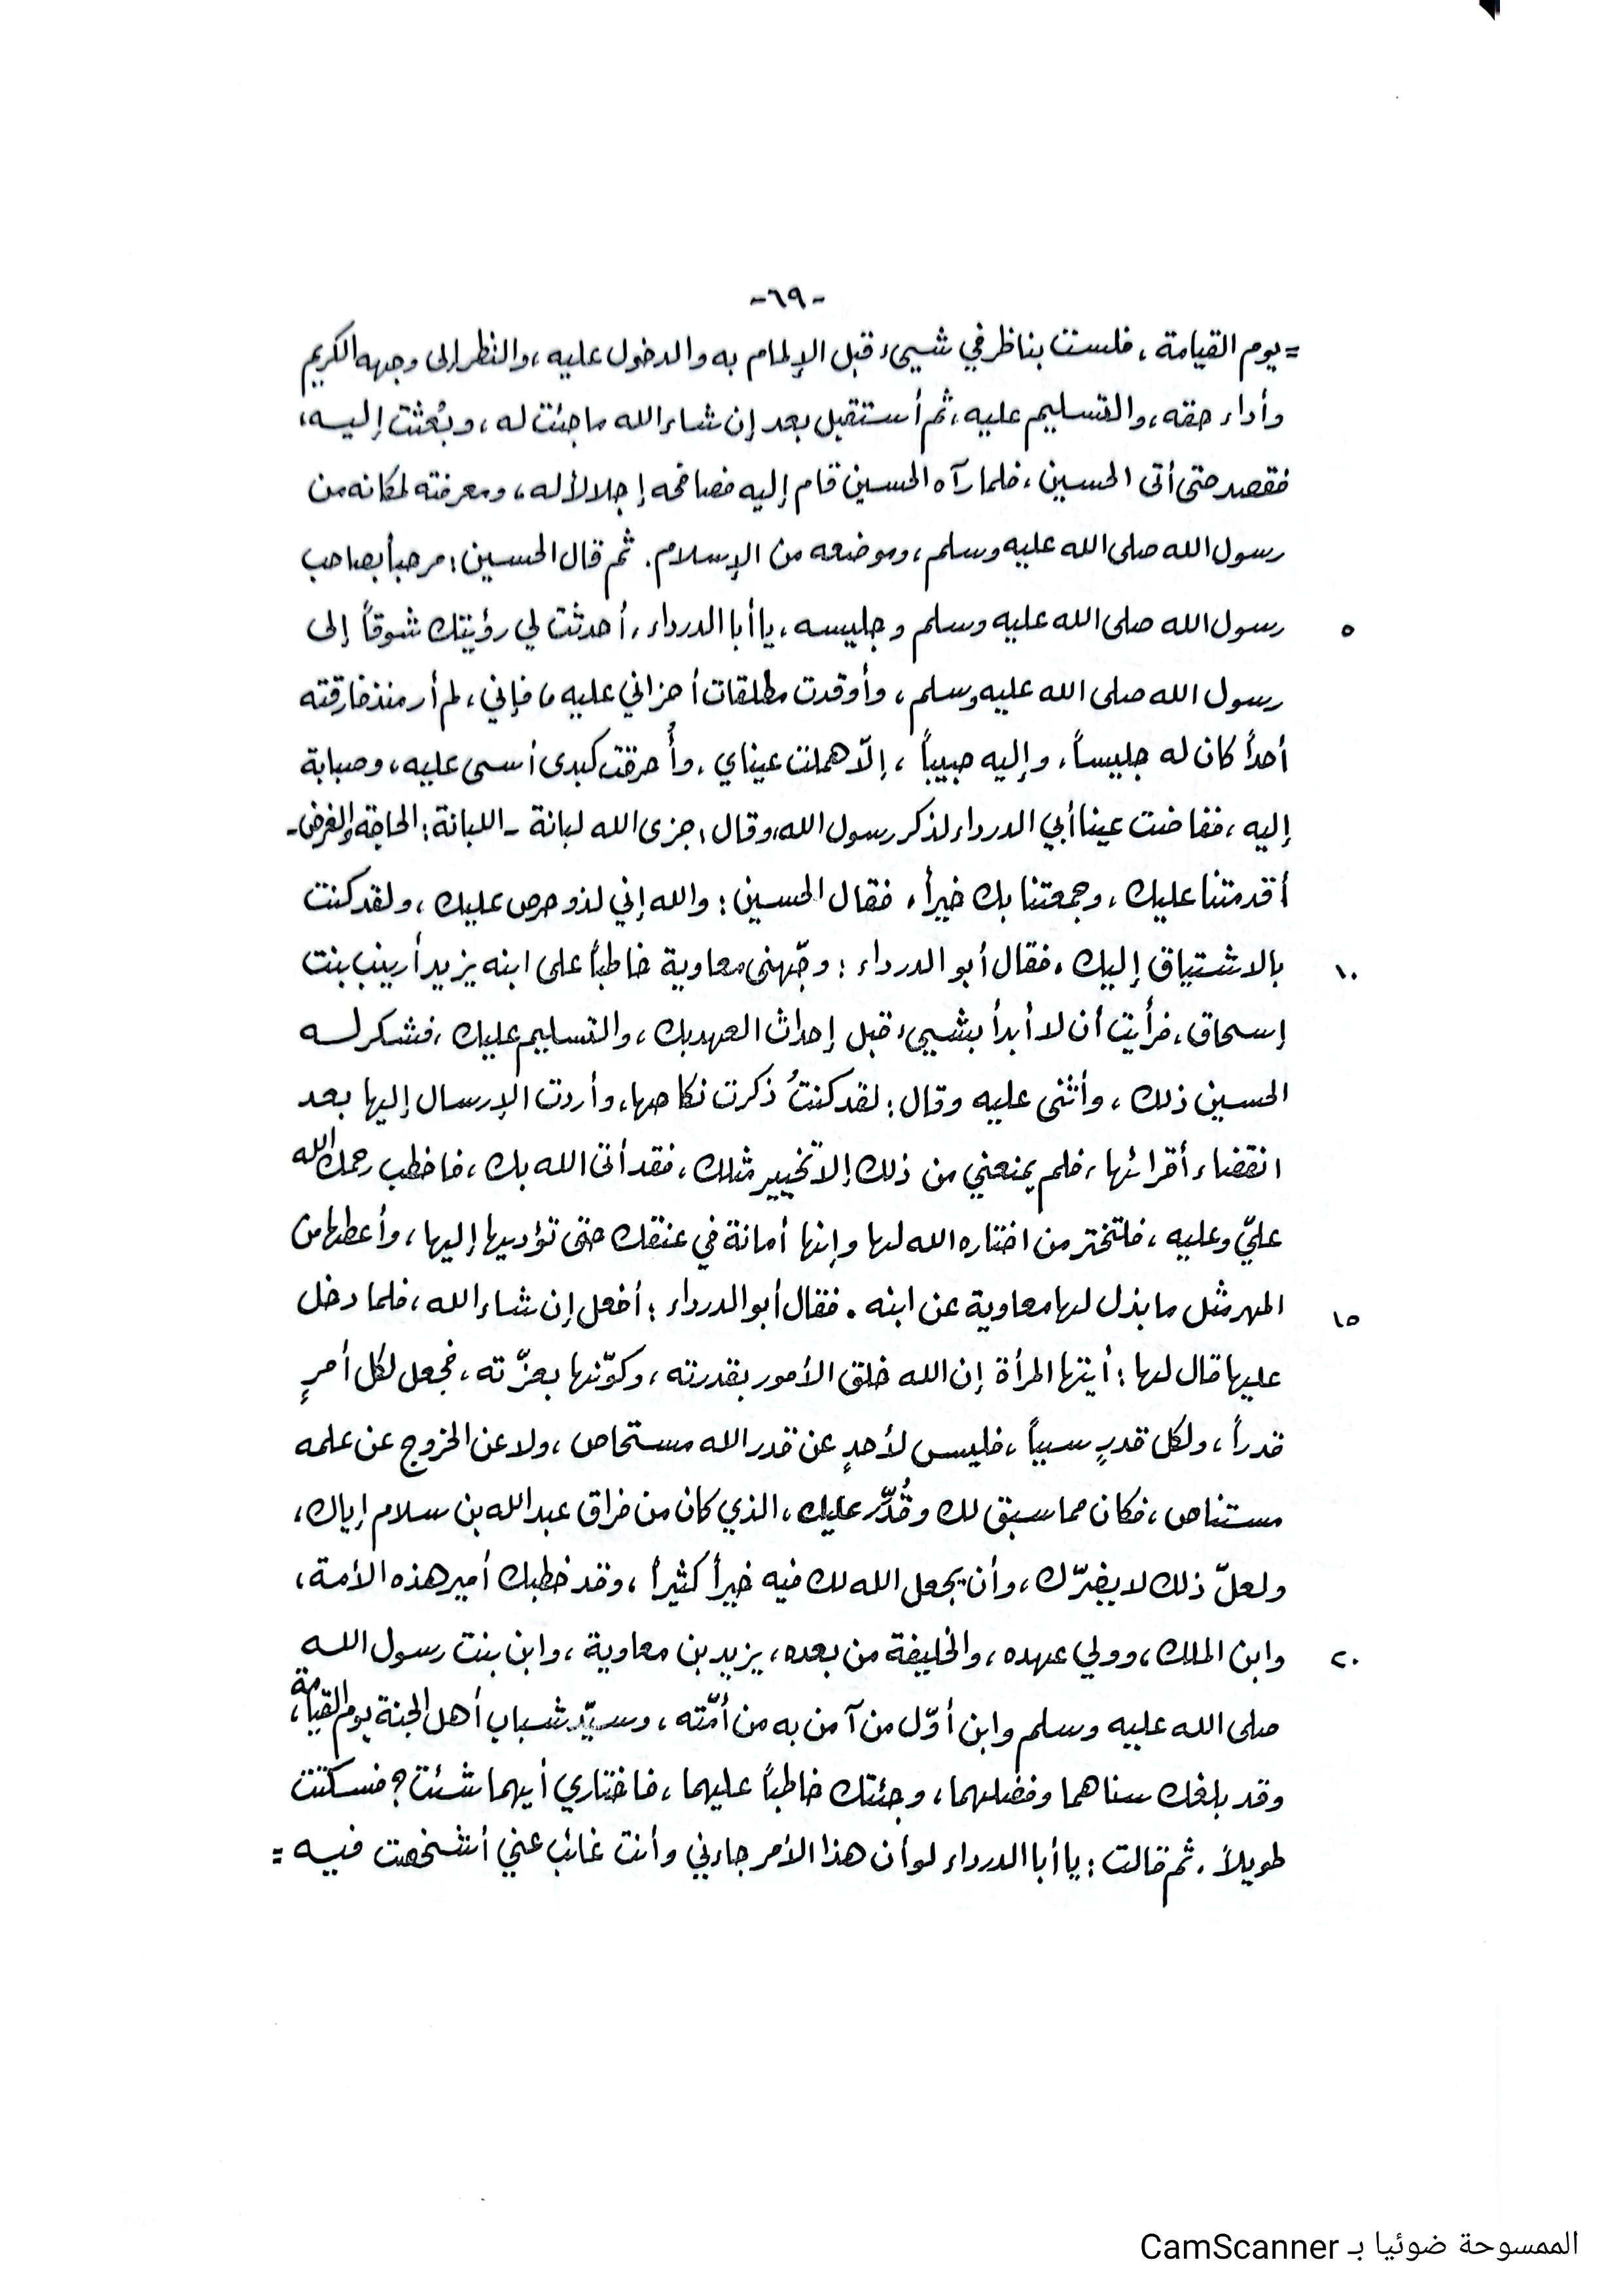 -٦٩-
= يوم القيامة، فلست بناظر في شيىء قبل الإلمام به والدخول عليه، والنظر إلى وجهه الكريم
وأداء حقه، والتسليم عليه، ثم أستقبل بعد إن شاء الله ما جئت له، وبُعثت إليه،
فقصد حتى أتى الحسين، فلما رآه الحسين قام إليه فصافحه إجلالاً له، ومعرفته لمكانه من
رسول الله صلى الله عليه وسلم، وموضعه من الإسلام. ثم قال الحسين: مرحباً بصاحب
٥ رسول الله صلى الله عليه وسلم وجليسه، يا أبا الدرداء، أحدثت لي رؤيتك شوقاً إلى
رسول الله صلى الله عليه وسلم، وأوقدت مطلقات أحزاني عليه ما فإني، لم أر منذ فارقته
أحداً كان له جليساً، وإليه حبيباً، إلّا هملت عيناي، وأُحرقت كبدى أسى عليه، وصبابة
إليه، ففاضت عينا أبي الدرداء لذكر رسول الله، وقال: جزى الله لبانة - اللبانة: الحاجة والغرض-
أقدمتنا عليك، وجمعتنا بك خيراً، فقال الحسين: والله إني لذو حرص عليك، ولقد كنت
١٠ بالاشتياق إليك. فقال أبو الدرداء: وجّهنى معاوية خاطباً على ابنه يزيد أرينب بنت
إسحاق، فرأيت أن لا أبدأ بشيىء قبل إحداث العهد بك، والتسليم عليك، فشكر له
الحسين ذلك، وأثنى عليه وقال: لقد كنتُ ذكرت نكاحها، وأردت الإرسال إليها بعد
انقضاء أقرائها، فلم يمنعني من ذلك إلا تخيير مثلك، فقد أتى الله بك، فاخطب رحمك الله
عليّ وعليه، فلتختر من اختاره الله لها وإنها أمانة في عنقك حتى تؤديها إليها، وأعطها من
١٥ المهر مثل ما بذل لها معاوية عن ابنه. فقال أبو الدرداء: أفعل إن شاء الله، فلما دخل
عليها قال لها: أيتها المرأة إن الله خلق الأمور بقدرته، وكوّنها بعزّته، فجعل لكل أمرٍ
قدراً، ولكل قدرٍ سبباً، فليس لأحدٍ عن قدر الله مستحاص، ولا عن الخروج عن علمه
مستناص، فكان مما سبق لك وقُدِّر عليك، الذي كان من فراق عبد الله بن سلام إياك،
ولعلّ ذلك لا يضرّك، وأن يجعل الله لك فيه خيراً كثيراً، وقد خطبك أمير هذه الأمة،
٢٠ وابن الملك، وولي عهده، والخليفة من بعده، يزيد بن معاوية، وابن بنت رسول الله
صلى الله عليه وسلم وابن أوّل من آمن به من أمّته، وسيّد شباب أهل الجنة يوم القيامة،
وقد بلغك سناهما وفضلهما، وجئتك خاطباً عليهما، فاختاري أيهما شئت؟ فسكتت
طويلاً. ثم قالت: يا أبا الدرداء لو أن هذا الأمر جاءني وأنت غائب عني أشخصت فيه =
الممسوحة ضوئيا بـ CamScanner